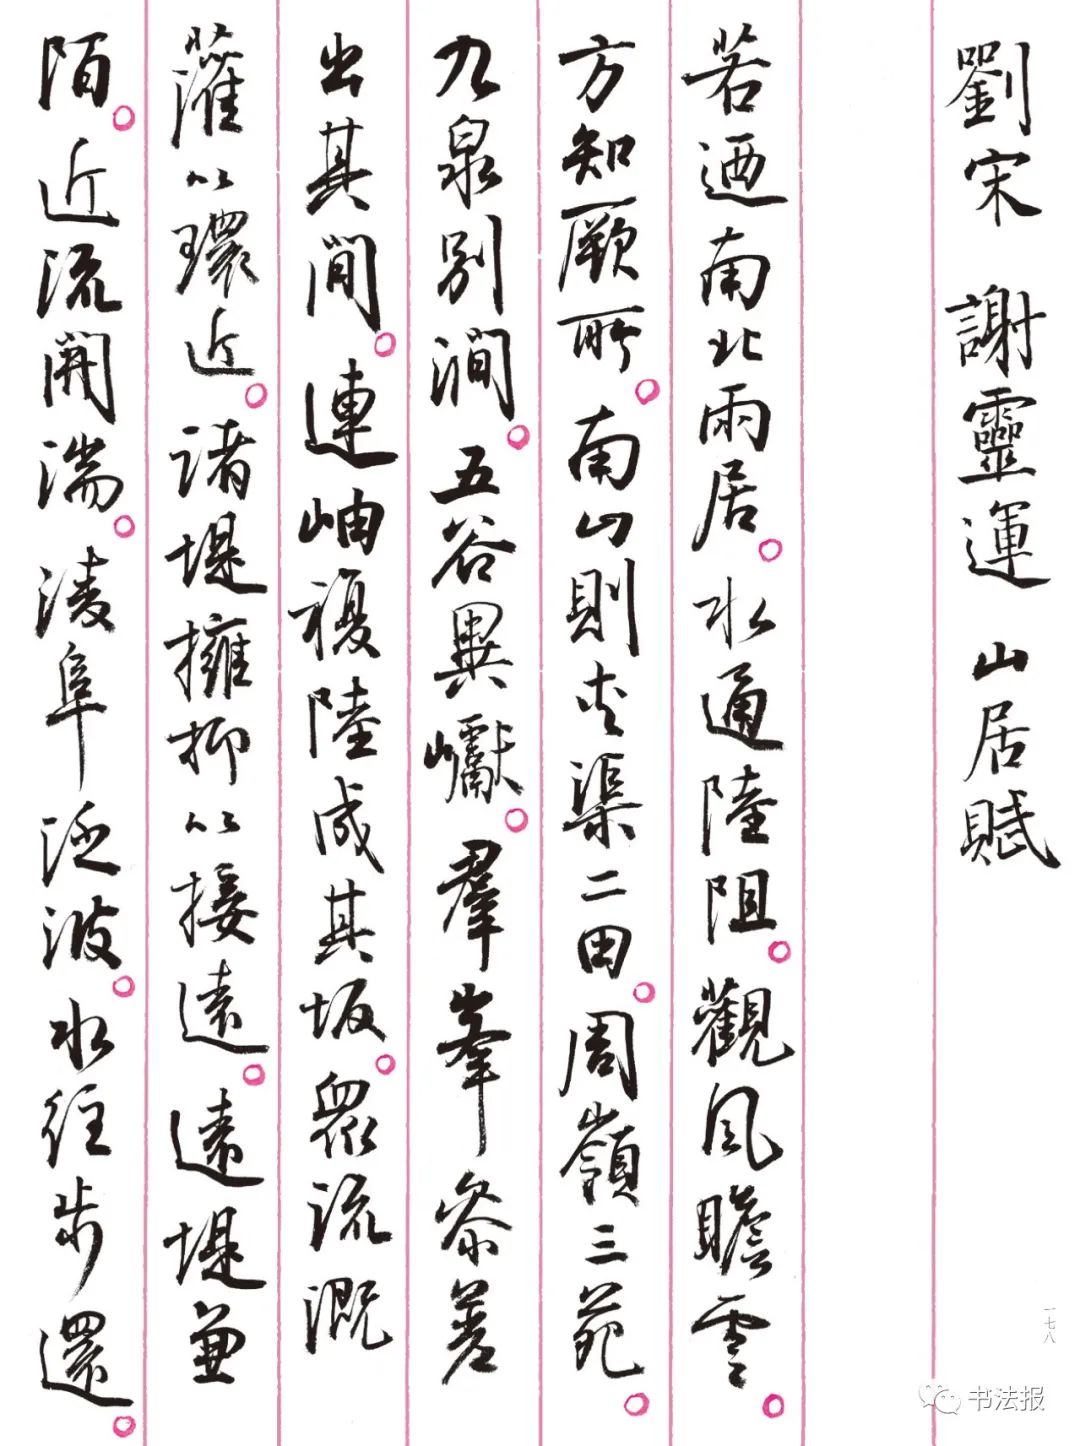 劉宋 謝靈運 山居賦
若迺南北兩居。水通陸阻。觀風瞻雲。
方知厥所。南山則夾渠二田。周嶺三苑。
九泉別澗。五谷異巘。羣峯參差
出其間。連岫複陸成其坂。眾流溉
灌以環近。諸堤擁抑以接遠。遠堤兼
陌。近流開湍。淩阜泛波。水往步還。
一七八
书法报